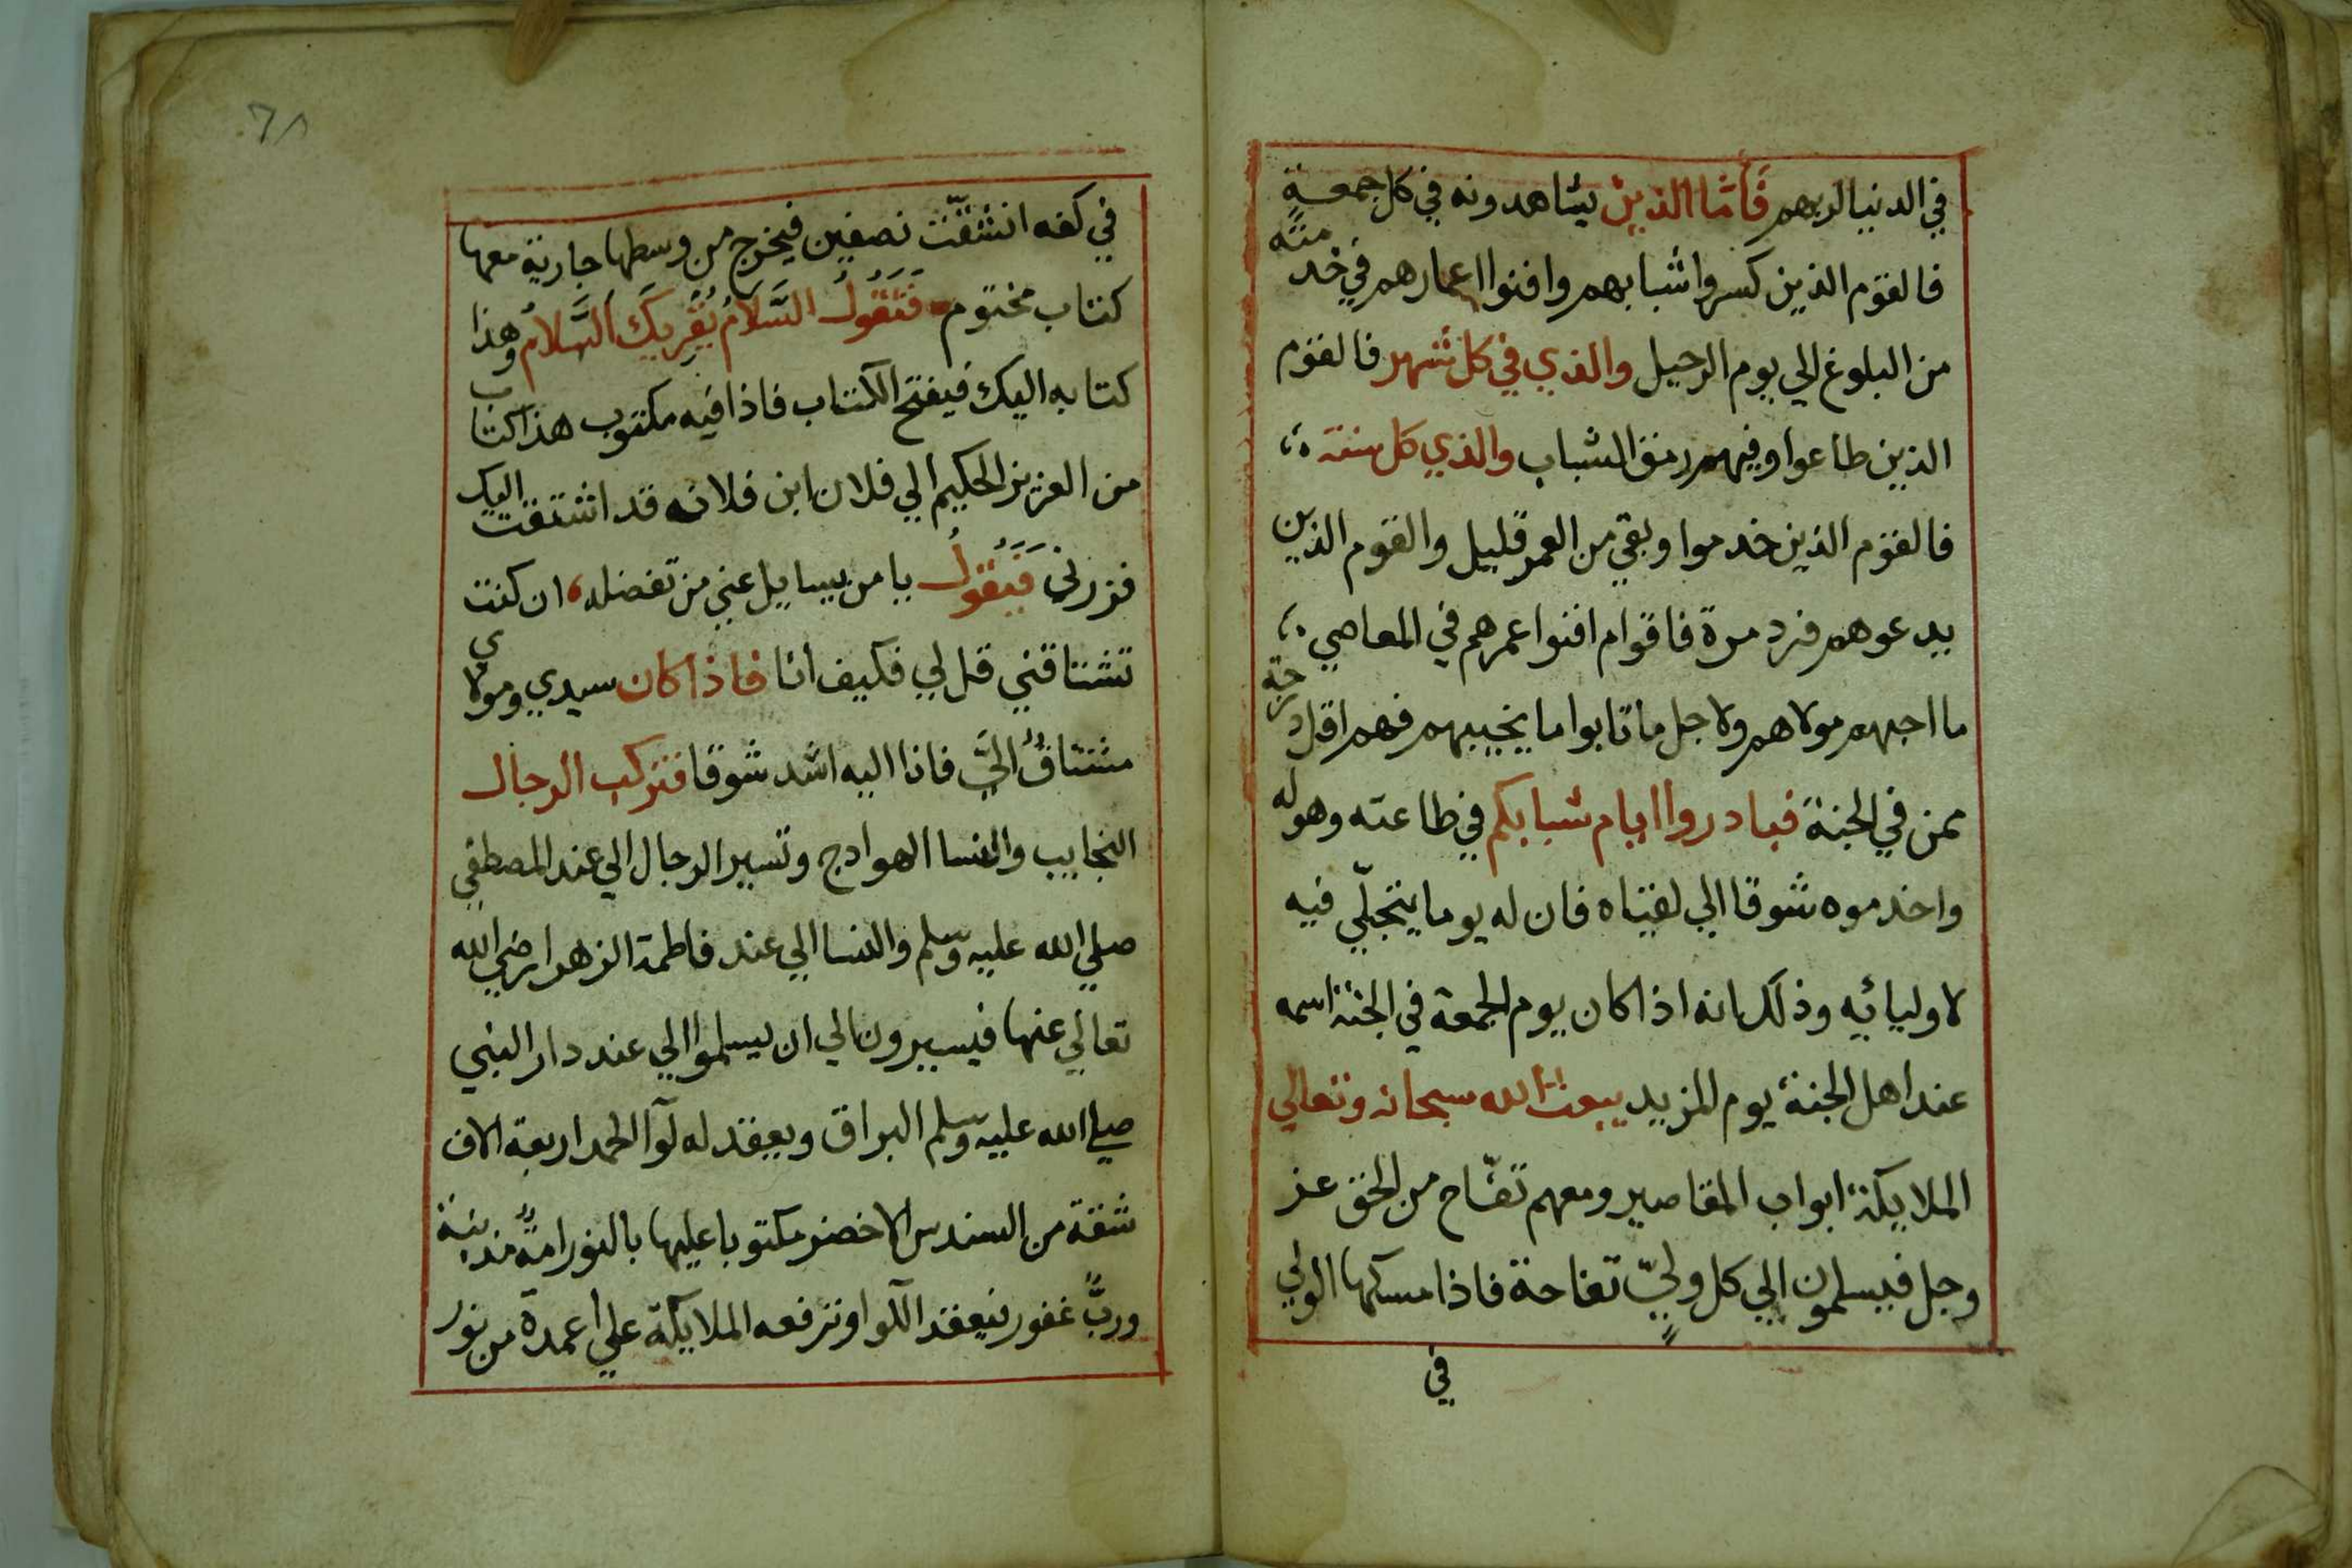 في الدنيا لربهم فَأَمّا الذين يشاهدونه في كل جمعةٍ
فالقوم الذين كسروا شبابهم وافنوا اعمارهم في خدمته
من البلوغ الي يوم الرحيل والذي في كل شهر فالقوم
الذين طاعوا وفيهم رمق الشباب والذي كل سنة
فالقوم الذين خدموا وبقي من العمر قليل والقوم الذين
يدعوهم فرد مرة فاقوام افنوا عمرهم في المعاصي
ما احبهم مولاهم ولاجل ما تابوا ما يخيبهم فهم اقل درجة
ممن في الجنة فبادروا ايام شبابكم في طاعته وهوله
واخدموه شوقا الي لقياه فان له يوما يتجلّي فيه
لاوليائه وذلك انه اذا كان يوم الجمعة في الجنة اسمه
عند اهل الجنة يوم المزيد يبعث الله سبحانه وتعالي
الملايكة ابواب المقاصير ومعهم تفّاح من الحق عز
وجل فيسلمون الي كل وليّ تفاحة فاذا مسكها الولي
في
٦٨
في كفه انشقّت نصفين فيخرج من وسطها جارية معها
كتاب مختوم فَتَقُولُ السَّلَامُ يُقْرِيكَ السَّلامُ وهذا
كتابه اليك فيفتح الكتاب فاذا فيه مكتوب هذا كتاب
من العزيز الحكيم الي فلان ابن فلانه قد اشتقت اليك
فزرني فَيَقُولُ يا من يسايل عني من تفضله ان كنت
تشتاقني قل لي فكيف انا فاذا كان سيدي ومولاي
مشتاقٌ اليَّ فانا اليه اشد شوقا فتركب الرجال
النجايب والنسا الهوادج وتسير الرجال الي عند المصطفي
صلي الله عليه وسلم والنسا الي عند فاطمة الزهرا رضي الله
تعالي عنها فيسيرون الي ان يسلموا الي عند دار النبي
صلي الله عليه وسلم البراق ويعقد له لوآ الحمد اربعة الاف
شقة من السندس الاخضر مكتوبا عليها بالنور امةٌ مذنبة
وربٌّ غفور فيعقد اللوا وترفعه الملايكة علي أعمدة من نور